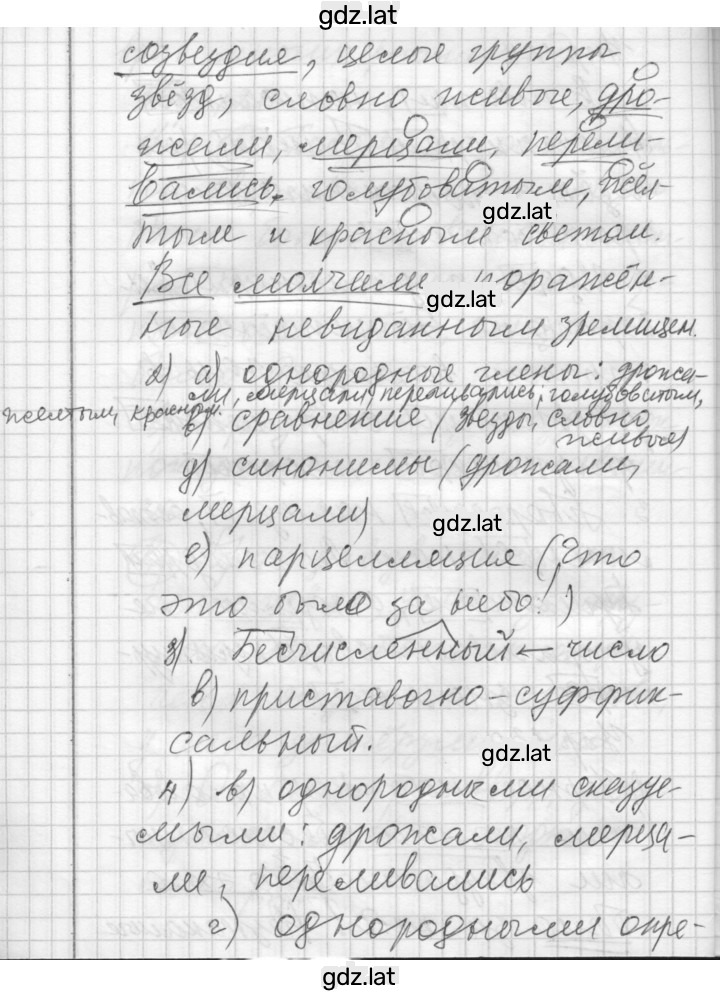 gdz.lat
созвездия, целые группы
звёзд, словно живые, дро-
жали, мерцали, перели-
вались голубоватым, жёл-
gdz.lat
тым и красным светом.
Все молчали поражён-
gdz.lat
ные невиданным зрелищем.
2) а) однородные члены: дрожа-
ли, мерцали, переливались; голубоватым,
желтым, красным.
в) сравнение (звезды, словно
живые)
д) синонимы (дрожали,
мерцали)
gdz.lat
е) парцелляция (Что
это было за небо!)
3). Бесчисленный ← число
в) приставочно-суффик-
сальный.
gdz.lat
4) в) однородными сказуе-
мыми: дрожали, мерца-
ли, переливались
г) однородными опре-
gdz.lat